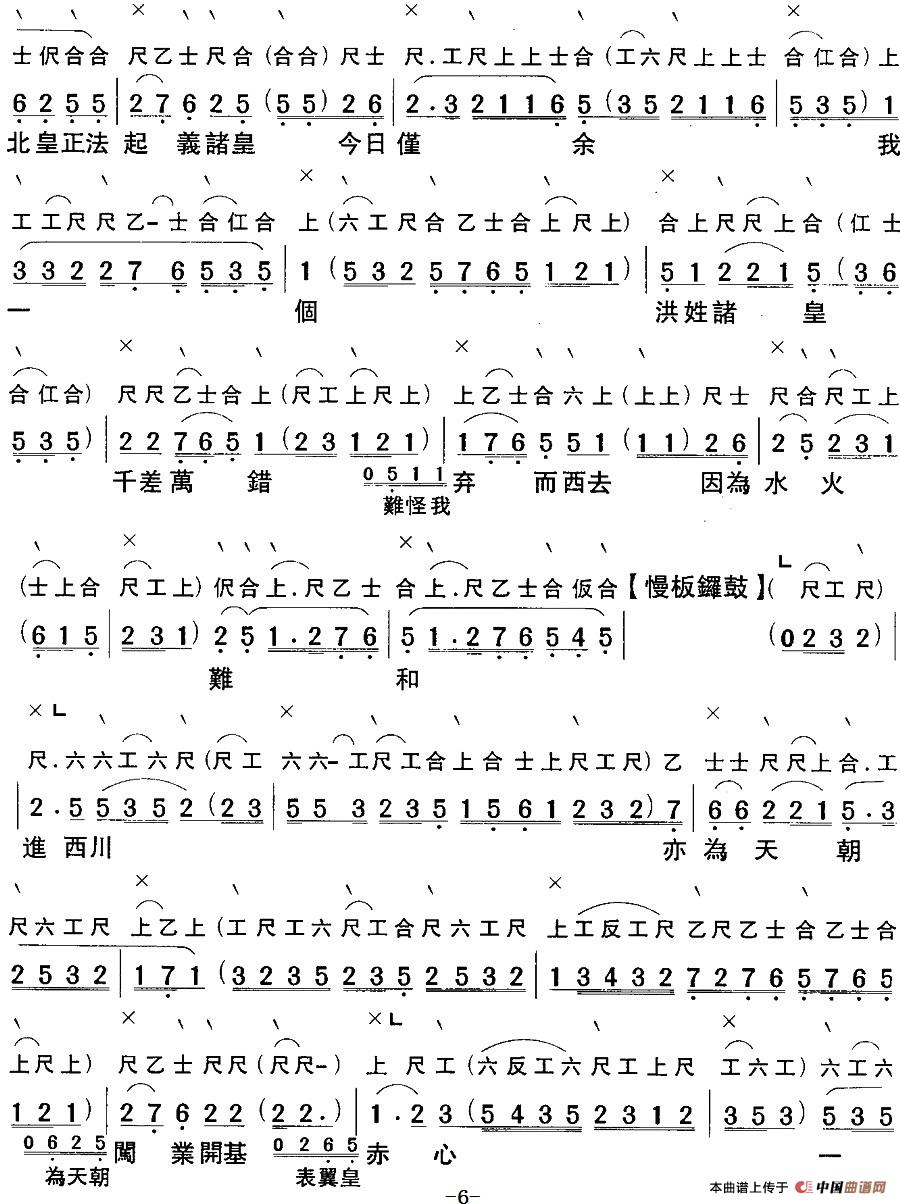 士伬合合 尺乙士尺合(合合)尺士 尺.工尺上上士合(工六尺上上士 合仜合)上
6 2 5 5 | 2 7 6 2 5 (5 5) 2 6 | 2 . 3 2 1 1 6 5 (3 5 2 1 1 6 | 5 3 5) 1
北皇正法起 義諸皇 今日僅 余 我
工工尺尺乙-士合仜合 上(六工尺合乙士合上尺上) 合上尺尺上合(仜士
3 3 2 2 7 6 5 3 5 | 1 (5 3 2 5 7 6 5 1 2 1) | 5 1 2 2 1 5 (3 6
一 個 洪姓諸 皇
合仜合) 尺尺乙士合上(尺工上尺上) 上乙士合六上(上上)尺士 尺合尺工上
5 3 5) | 2 2 7 6 5 1 (2 3 1 2 1) | 1 7 6 5 5 1 (1 1) 2 6 | 2 5 2 3 1
千差萬 錯 0 5 1 1 弃 而西去 因為水 火
難怪我
(士上合 尺工上)伬合上.尺乙士 合上.尺乙士合仮合【慢板鑼鼓】( 尺工尺)
(6 1 5 | 2 3 1) 2 5 1 . 2 7 6 | 5 1 . 2 7 6 5 4 5 | (0 2 3 2) |
難 和
尺.六六工六尺(尺工 六六-工尺工合上合士上尺工尺)乙 士士尺尺上合.工
| 2 . 5 5 3 5 2 (2 3 | 5 5 3 2 3 5 1 5 6 1 2 3 2) 7 | 6 6 2 2 1 5 . 3
進西川 亦為天 朝
尺六工尺 上乙上(工尺工六尺工合尺六工尺 上工反工尺乙尺乙士合乙士合
2 5 3 2 | 1 7 1 (3 2 3 5 2 3 5 2 5 3 2 | 1 3 4 3 2 7 2 7 6 5 7 6 5
上尺上) 尺乙士尺尺(尺尺-) 上尺工(六反工六尺工上尺 工六工)六工六
1 2 1) | 2 7 6 2 2 (2 2 .) | 1 . 2 3 (5 4 3 5 2 3 1 2 | 3 5 3) 5 3 5
0 6 2 5 闖 業開基 0 2 6 5 赤 心 一
為天朝 表翼皇
-6-
本曲谱上传于 中国曲谱网